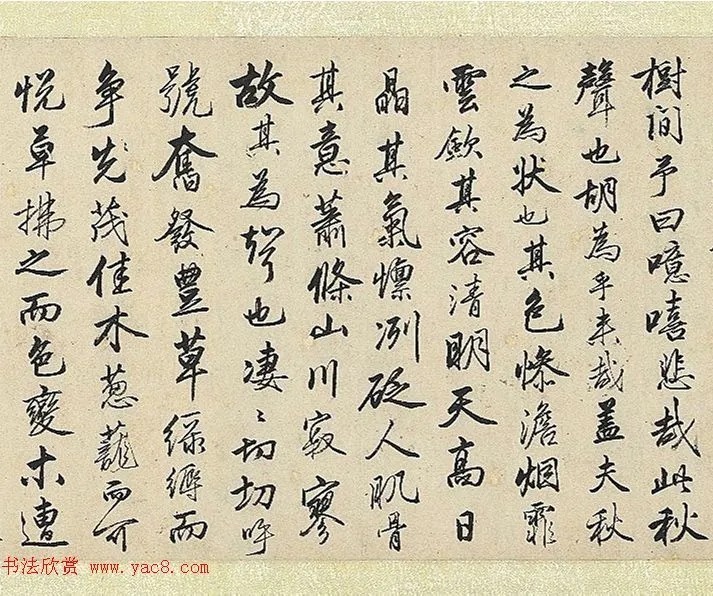 樹間予曰噫嘻悲哉此秋
聲也胡為乎来哉蓋夫秋
之為狀也其色慘澹烟霏
雲歛其容清明天高日
晶其氣慄冽砭人肌骨
其意蕭條山川寂寥
故其為聲也凄〻切切呼
號奮發豊草綠縟而
争先茂佳木葱蘢而可
悦草拂之而色變木遭
书法欣赏 www.yac8.com